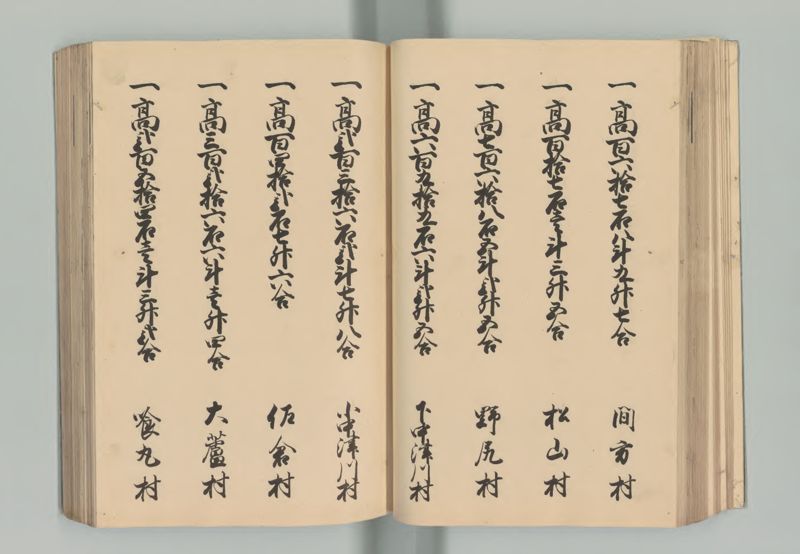 一高百六拾七石八斗九升七合 間方村
一高百拾七石壱斗三升五合 松山村
一高七百六拾八石五斗弐升五合 野尻村
一高六百九拾九石六斗弐升五合 下中津川村
一高弐百三拾六石弐斗七升八合 小中津川村
一高百四拾弐石七升六合 佐倉村
一高三百弐拾六石六斗壱升四合 大蘆村
一高弐百五拾四石壱斗三升弐合 喰丸村